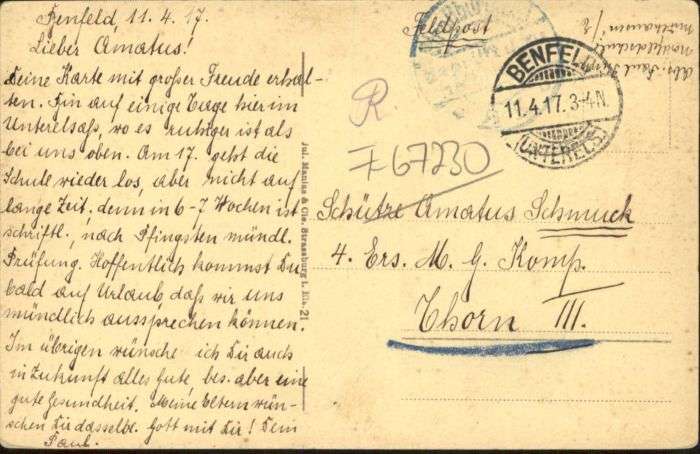 Benfeld, 11. 4. 17.
Lieber Amatus!
Deine Karte mit großer Freude erhal-
ten. Bin auf einige Tage hier im
Unterelsaß, wo es ruhiger ist als
bei uns oben. Am 17. geht die
Schule wieder los, aber nicht auf
lange Zeit, denn in 6-7 Wochen ist
schriftl., nach Pfingsten mündl.
Prüfung. Hoffentlich kommst Du
bald auf Urlaub, daß wir uns
mündlich aussprechen können.
Im übrigen wünsche ich Dir auch
in Zukunft alles Gute, bes. aber eine
gute Gesundheit. Meine Eltern wün-
schen Dir dasselbe. Gott mit Dir! Dein
Paul.
Jul. Manias & Cie. Strassburg i. Els. 21
Feldpost
Abs. Paul
BENFELD
11.4.17. 3-4N.
(UNTERELS.)
R.
F 67230
Schütze Amatus Schmuck
4. Ers. M. G. Komp.
Thorn III.